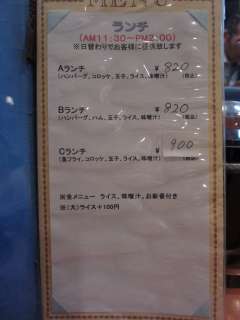 MENU
ランチ
(AM11:30～PM2:00)
※日替わりでお客様に提供致します
Aランチ ¥820
(ハンバーグ、コロッケ、玉子、ライス、味噌汁) (税込)
Bランチ ¥820
(ハンバーグ、ハム、玉子、ライス、味噌汁) (税込)
Cランチ ¥900
(海老フライ、コロッケ、玉子、ライス、味噌汁) (税込)
※全メニュー ライス、味噌汁、お新香付き
※(大)ライス+100円